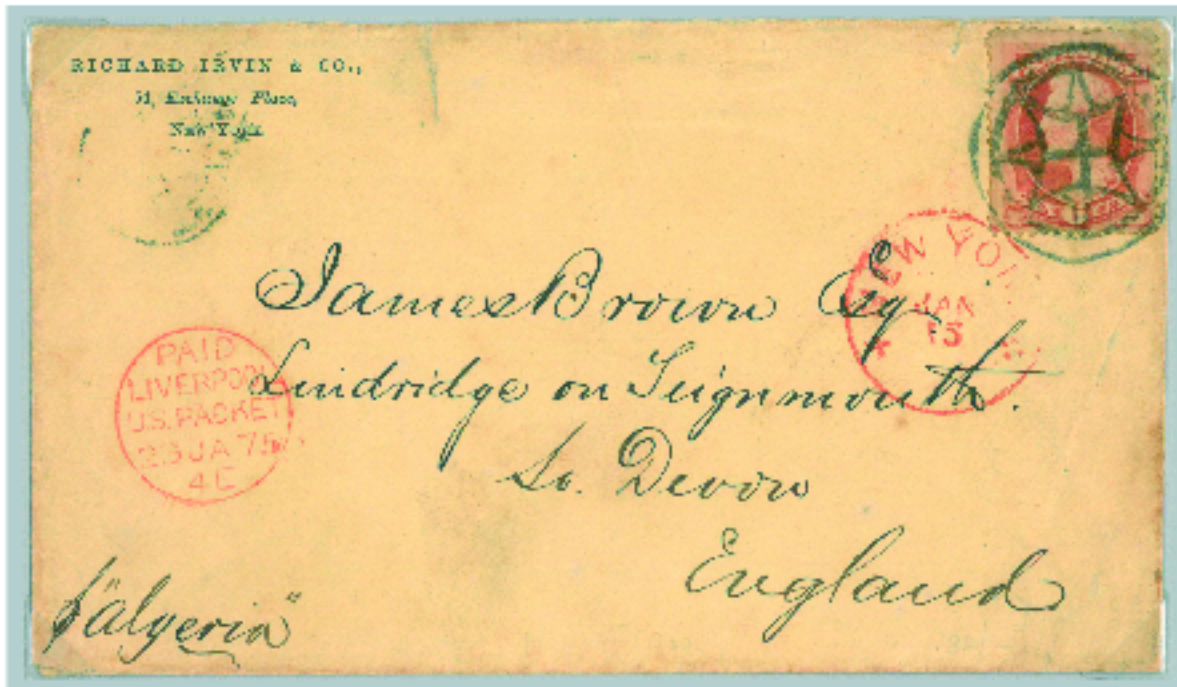 RICHARD IRVIN & CO.,
51, Exchange Place,
New York
NEW YO
JAN
13
James Brown Esq
Lindridge on Teignmouth.
So. Devon
England
PAID
LIVERPOOL
U.S. PACKET
23 JA 75
4C
p "Algeria"